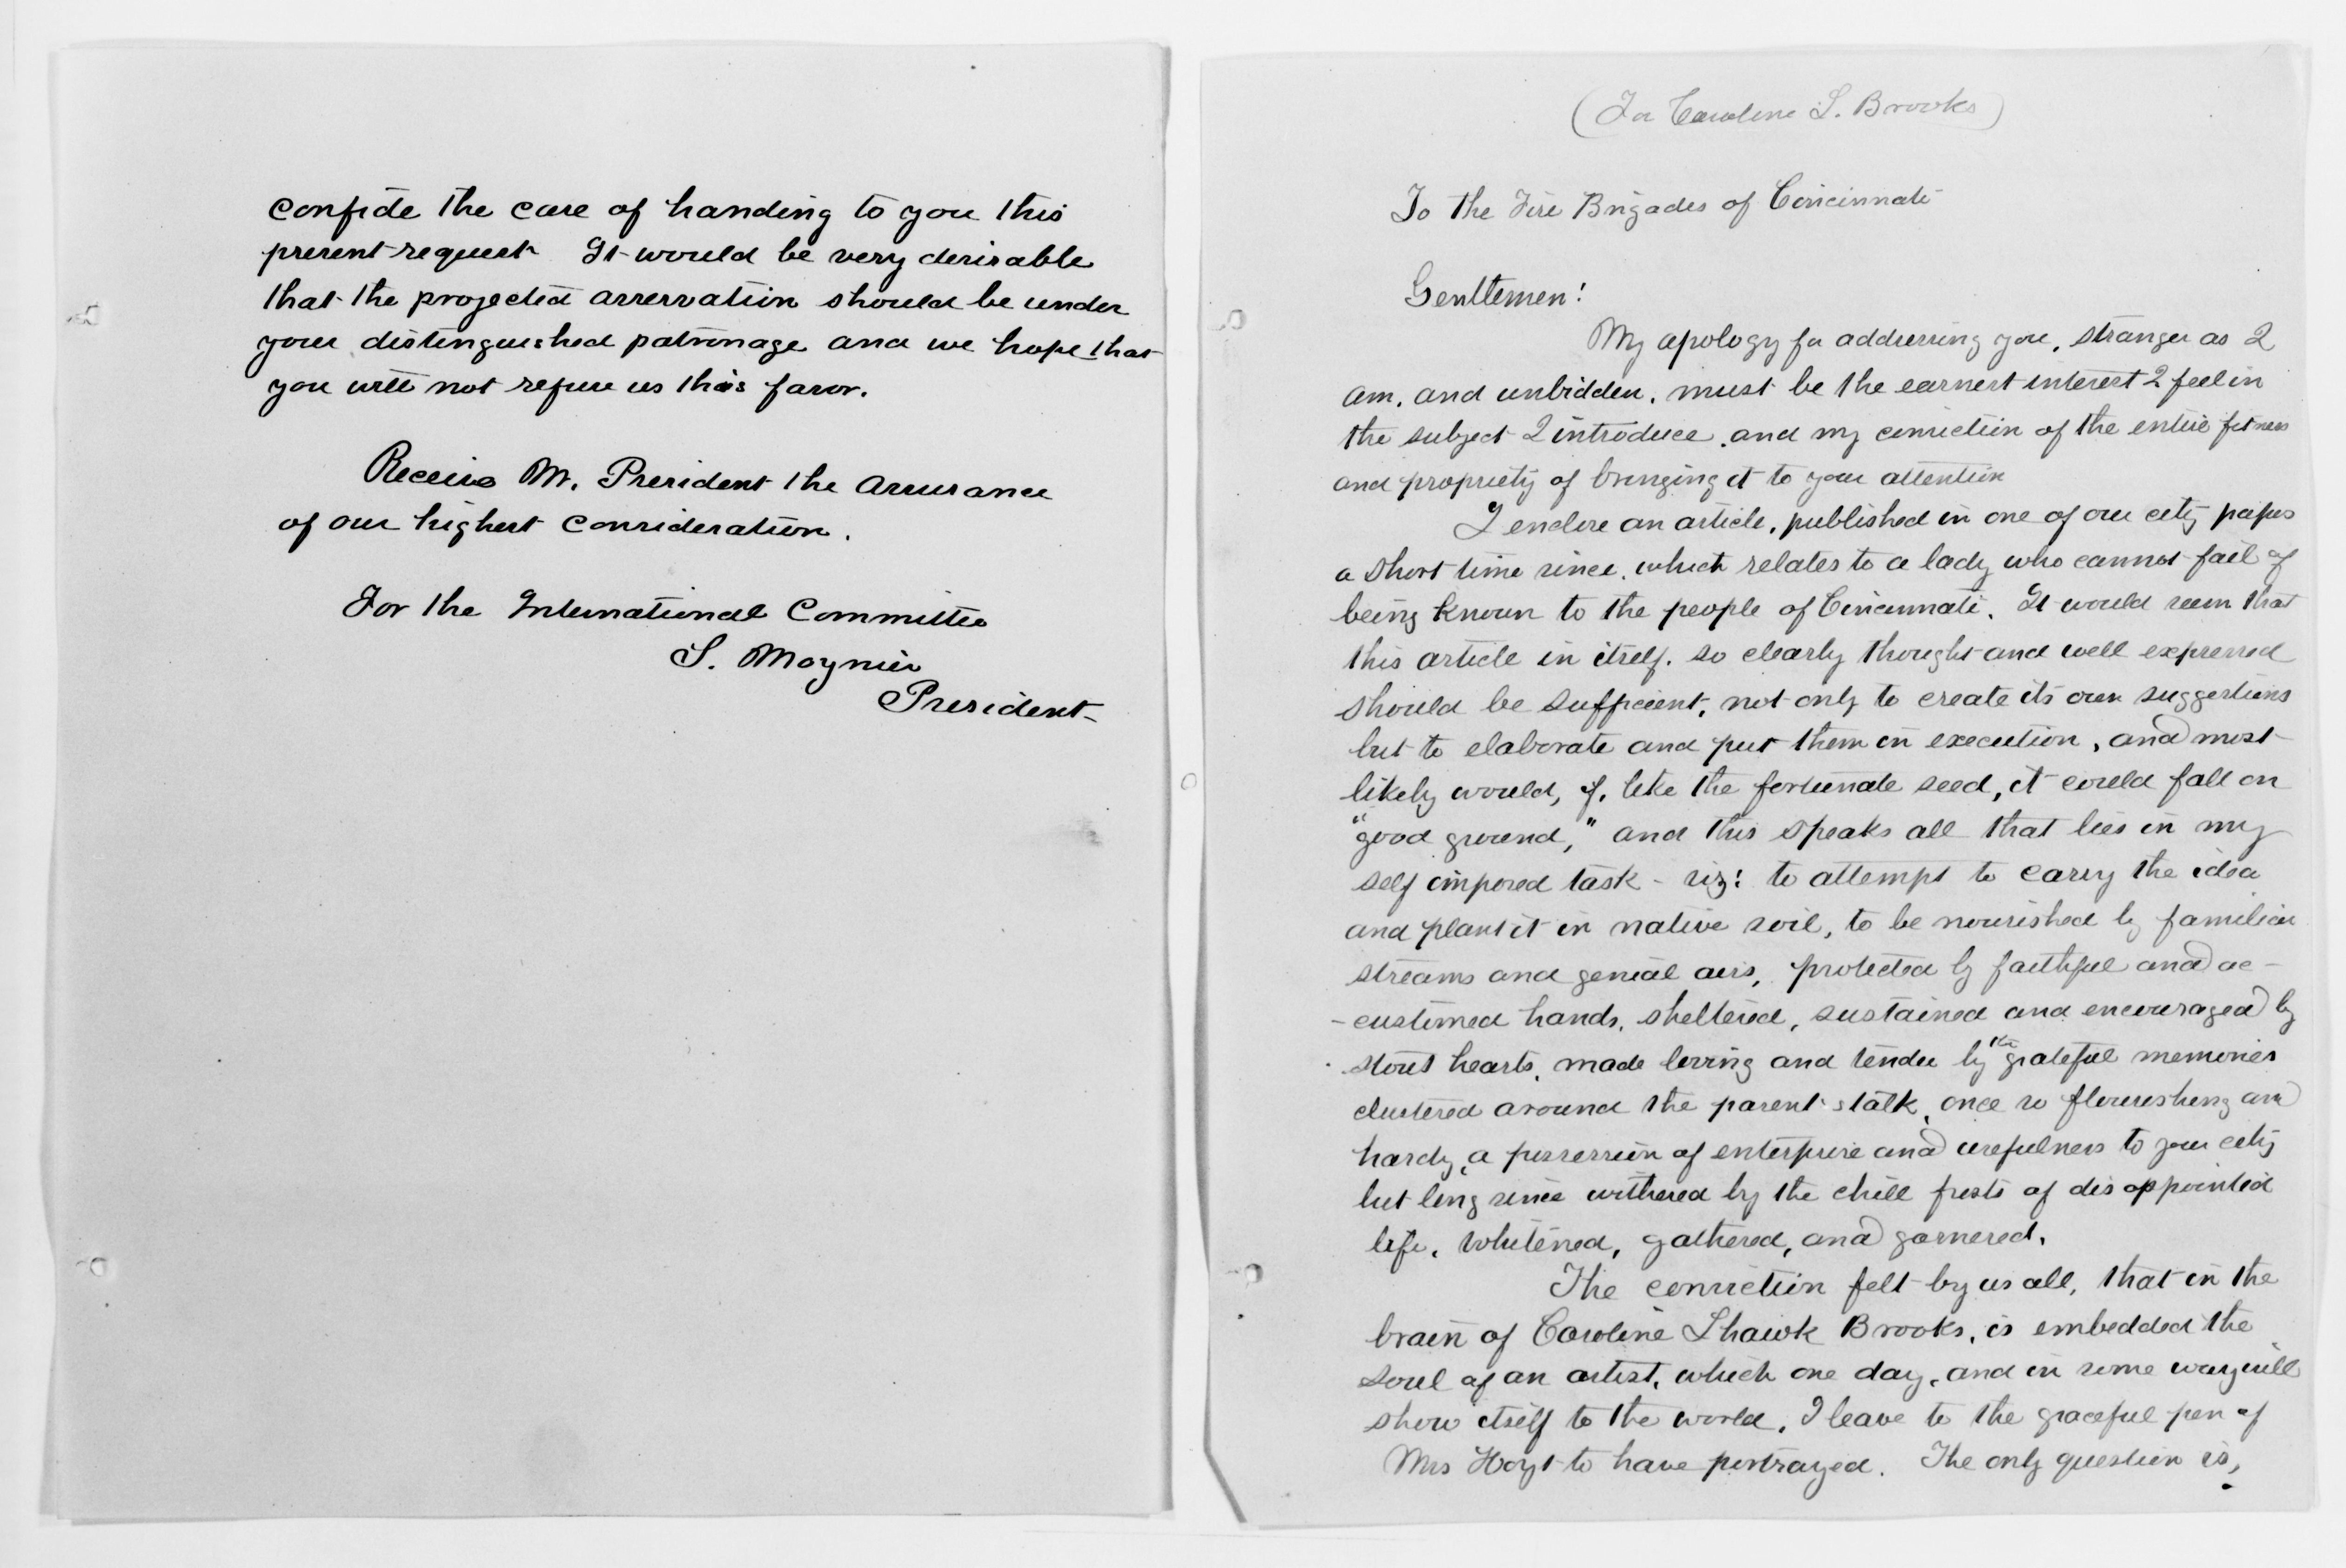 confide the care of handing to you this
present request It would be very desirable
that the projected asservation should be under
your distinguished patronage and we hope that
you will not refuse us this favor.
Receive Mr. President the assurance
of our highest consideration.
For the International Committee
G. Moynier
President
(For Caroline S. Brooks)
To the Fire Brigades of Cincinnati
Gentlemen!
My apology for addressing you, stranger as I
am, and unbidden, must be the earnest interest I feel in
the subject I introduce, and my conviction of the entire fitness
and propriety of bringing it to your attention
I enclose an article, published in one of our city papers
a short time since, which relates to a lady who cannot fail of
being known to the people of Cincinnati. It would seem that
this article in itself, so clearly thought and well expressed
should be sufficient, not only to create its own suggestions
but to elaborate and put them in execution, and most
likely would, if, like the fortunate seed, it could fall on
"good ground," and this speaks all that lies in my
self imposed task - viz: to attempt to carry the idea
and plant it in native soil, to be nourished by familiar
streams and genial airs, protected by faithful and ac-
-customed hands, sheltered, sustained and encouraged by
stout hearts, made loving and tender by the grateful memories
clustered around the parent stalk, once so flourishing and
hardy, a possession of enterprise and usefulness to your city
but long since withered by the chill frosts of disappointed
life, whitened, gathered, and garnered.
The conviction felt by us all, that in the
brain of Caroline Shawk Brooks, is embedded the
soul of an artist, which one day, and in some way will
show itself to the world, I leave to the graceful pen of
Mrs Hoyt to have portrayed. The only question is,